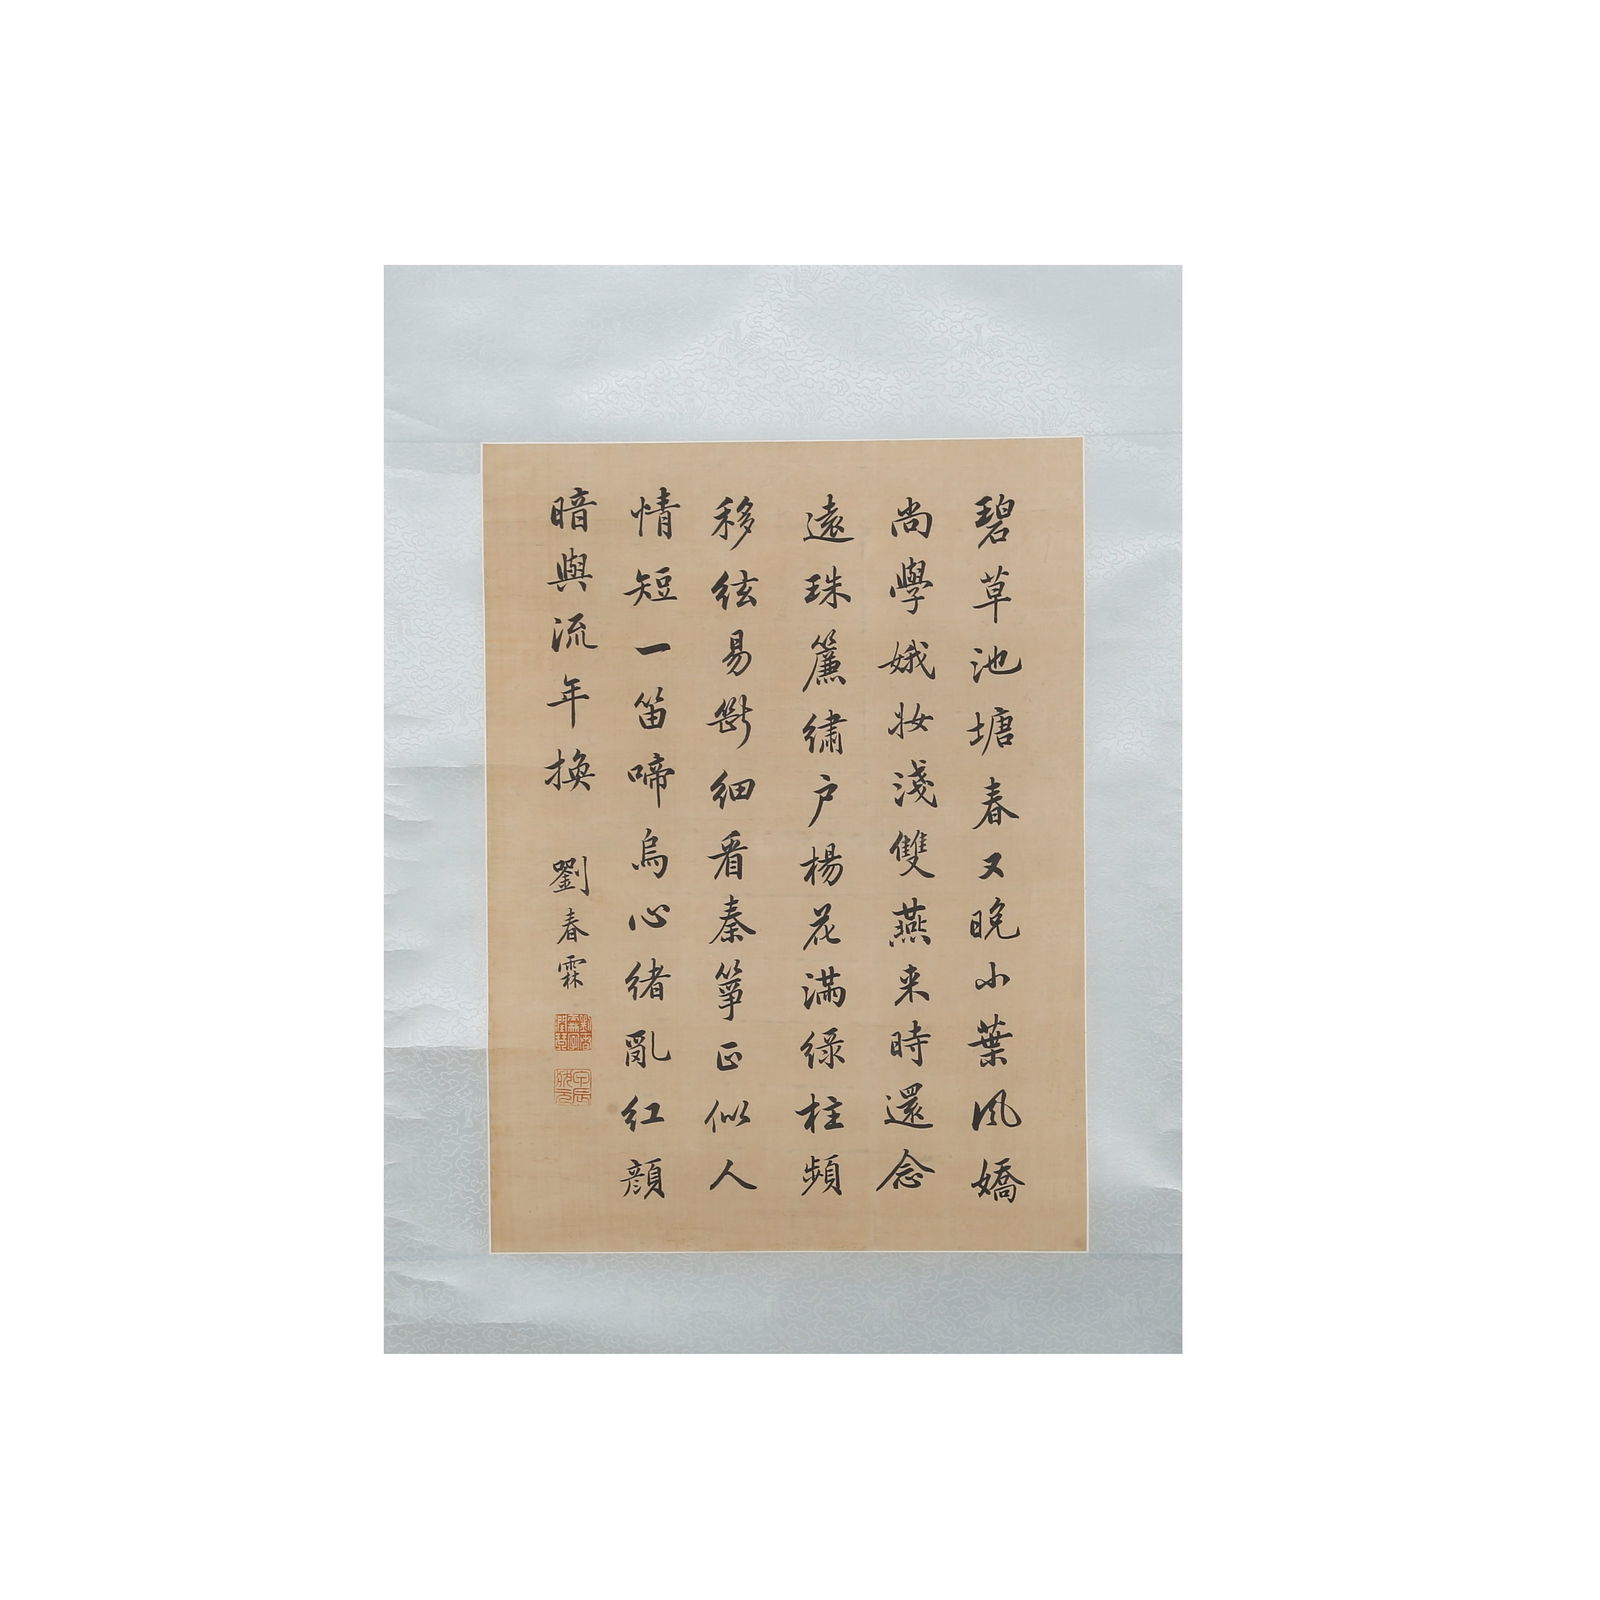 碧草池塘春又晚小葉風嬌
尚學娥妝淺雙燕来時還念
遠珠簾繡户楊花滿綠柱頻
移絃易斷細看秦筝正似人
情短一笛啼烏心緒亂紅顔
暗與流年換
劉春霖